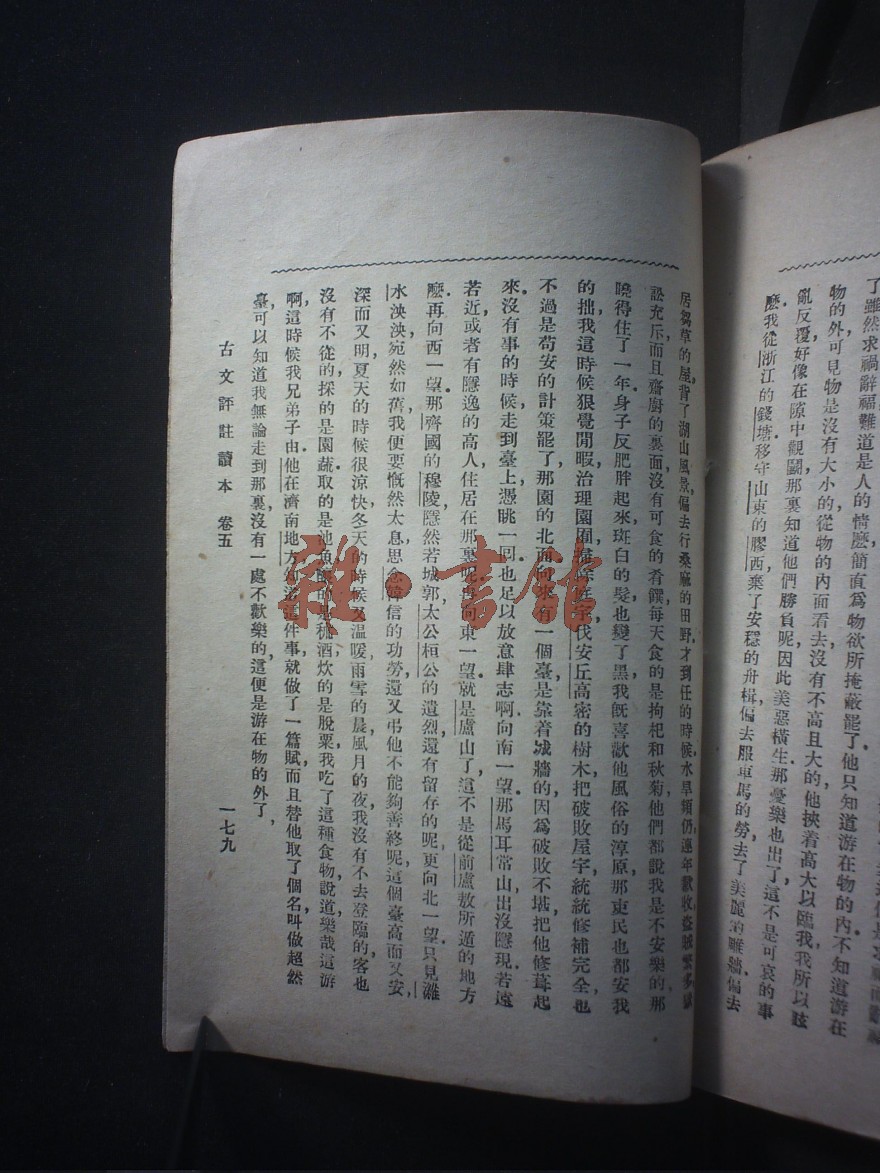 了雖然求禍辭福難道是人的情麽簡直爲物欲所掩蔽罷了他只知道游在物的內不知道游在
物的外可見物是沒有大小的從物的內面看去沒有不高且大的他挾着高大以臨我我所以眩
亂反覆好像在隙中觀鬭那裏知道他們勝負呢因此美惡橫生那憂樂也出了這不是可哀的事
麽我從浙江的錢塘移守山東的膠西棄了安穩的舟楫偏去服車馬的勞去了美麗的雕牆偏去
居芻草的屋背了湖山風景偏去行桑麻的田野才到任的時候水旱頻仍連年歉收盜賊繁多獄
訟充斥而且齋廚的裏面沒有可食的肴饌每天食的是拘杞和秋菊他們都說我是不安樂的那
曉得住了一年身子反肥胖起來斑白的髮也變了黑我旣喜歡他風俗的淳厚那吏民也都安我
的拙我這時候狠覺閒暇治理園圃掃除庭宇伐安丘高密的樹木把破敗屋宇統統修補完全也
不過是苟安的計策罷了那園的北面向來有一個臺是靠着城牆的因爲破敗不堪把他修葺起
來沒有事的時候走到臺上憑眺一回也足以放意肆志啊向南一望那馬耳常山出沒隱現若遠
若近或者有隱逸的高人住居在那裏呢再向東一望就是盧山了這不是從前盧敖所遁的地方
麽再向西一望那齊國的穆陵隱然若城郭太公桓公的遺烈還有留存的呢更向北一望只見濰
水泱泱宛然如舊我便要慨然太息思念韓信的功勞還又弔他不能夠善終呢這個臺高而又安
深而又明夏天的時候很涼快冬天的時候又溫暖雨雪的晨風月的夜我沒有不去登臨的客也
沒有不從的採的是園蔬取的是池魚釀的是秫酒炊的是脫粟我吃了這種食物說道樂哉這游
啊這時候我兄弟子由他在濟南地方知道這件事就做了一篇賦而且替他取了個名叫做超然
臺可以知道我無論走到那裏沒有一處不歡樂的這便是游在物的外了
古文評註讀本 卷五 一七九
雜·書館